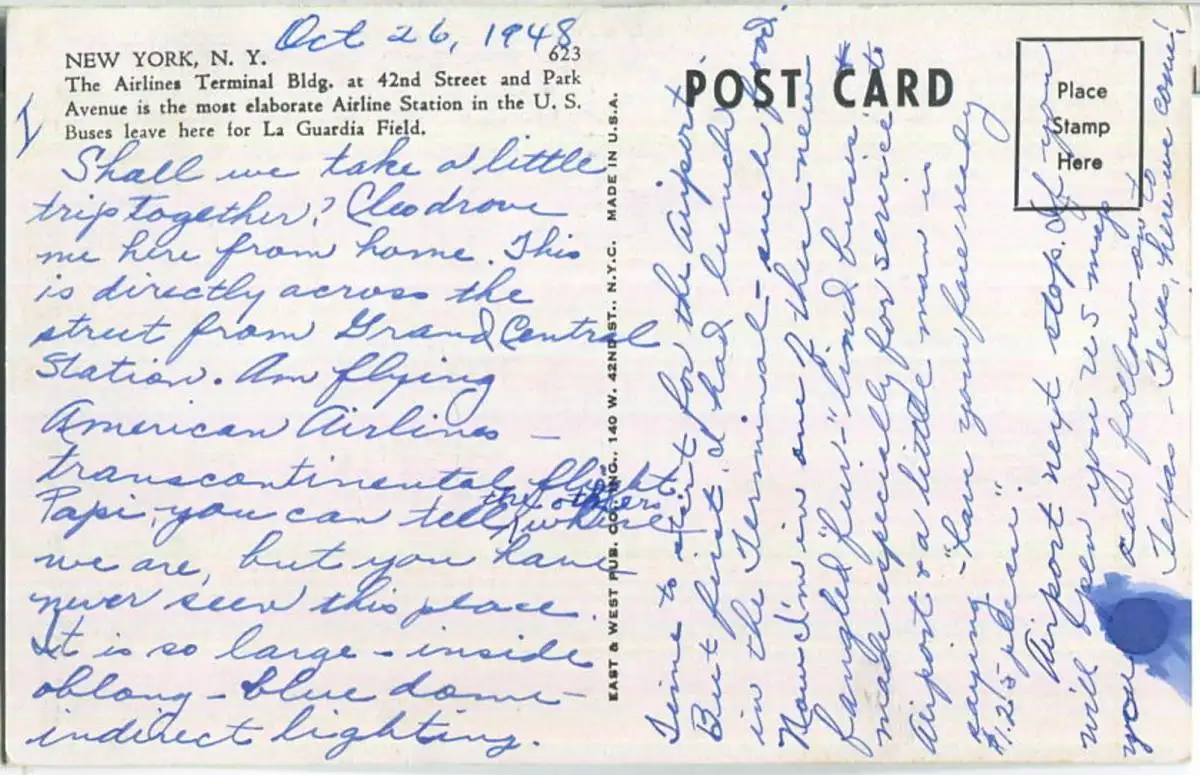 Oct 26, 1948
NEW YORK, N. Y. 623
The Airlines Terminal Bldg. at 42nd Street and Park
Avenue is the most elaborate Airline Station in the U. S.
Buses leave here for La Guardia Field.
I
Shall we take a little
trip together? Cleo drove
me here from home. This
is directly across the
street from Grand Central
Station. Am flying
American Airlines -
transcontinental flight.
Papi, you can tell the others where
we are, but you have
never seen this place.
It is so large - inside
oblong - blue dome -
indirect lighting.
EAST & WEST PUB. CO., INC., 140 W. 42ND ST., N.Y.C. MADE IN U.S.A.
POST CARD
Place
Stamp
Here
Time to start for the Airport.
But first, I had lunch
in the Terminal - such food!
Now I'm in one of their new
fangled "fur"-lined buses
made especially for service to
Airport & a little man is
saying - "have your fares ready
$1.25 please".
Airport next stop. If you
will open your U S map
you can follow on to
Texas - Texas, here we come!